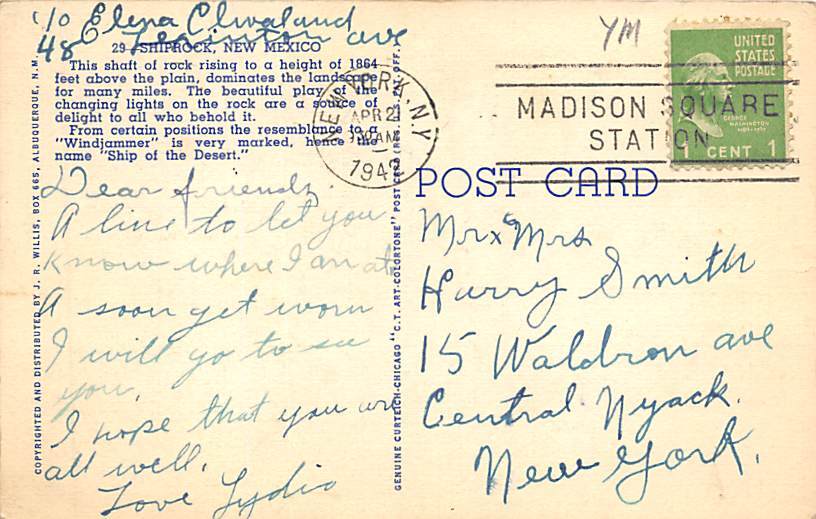 c/o Elena Clivaland
48 Lexinton ave
29 SHIPROCK, NEW MEXICO
This shaft of rock rising to a height of 1864
feet above the plain, dominates the landscape
for many miles. The beautiful play of the
changing lights on the rock are a source of
delight to all who behold it.
From certain positions the resemblance to a
"Windjammer" is very marked, hence the
name "Ship of the Desert."
Dear friends.
A line to let you
know where I am at.
A soon get worm
I will go to see
you,
I hope that you are
all well.
Love Lydia
COPYRIGHTED AND DISTRIBUTED BY J. R. WILLIS, BOX 665, ALBUQUERQUE, N.M.
GENUINE CURTEICH-CHICAGO "C.T. ART-COLORTONE" POST CARD (REG. U.S. PAT. OFF.)
YM
NEW YORK, N.Y.
APR 21
AM
1942
MADISON SQUARE
STATION
UNITED
STATES
POSTAGE
GEORGE
WASHINGTON
1789-1797
1 CENT 1
POST CARD
Mr x Mrs
Harry Smith
15 Waldron ave
Central Nyack.
New York.